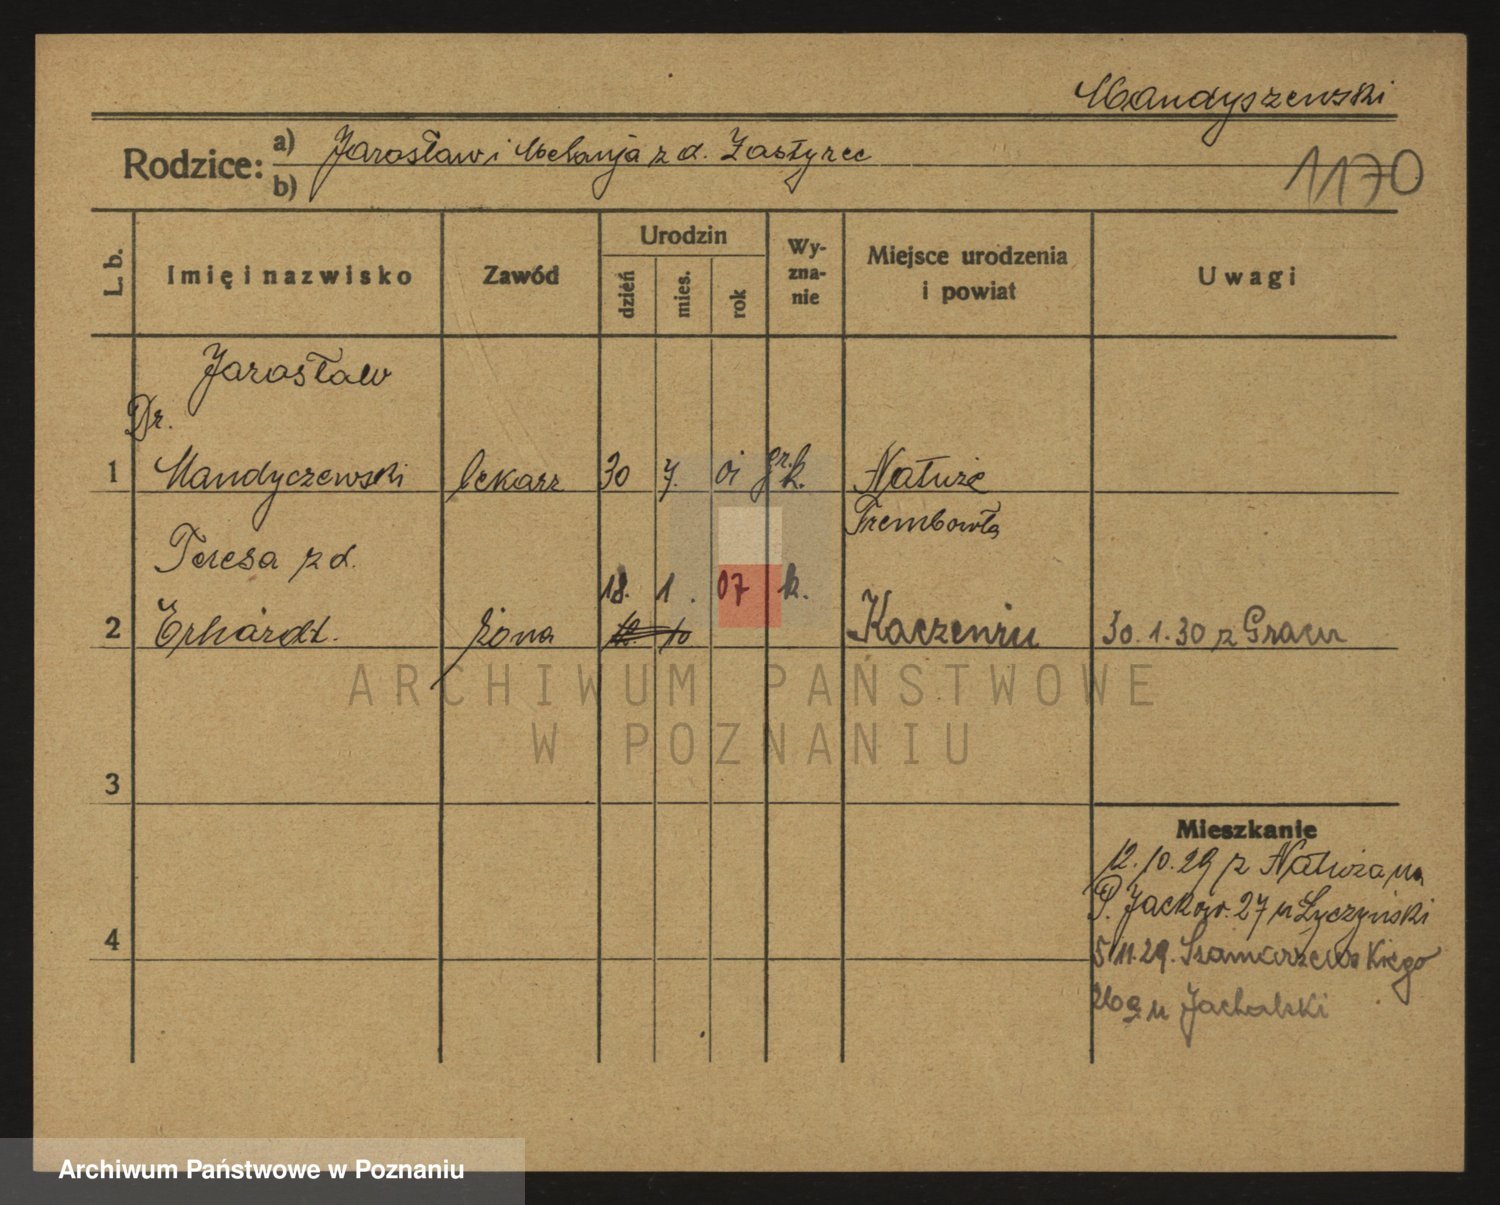 Mandyszewski
Rodzice: a) Jarosław i Melanja z d. Zastyrec
b)
1170
L. b.
Imię i nazwisko
Zawód
Urodzin
dzień
mies.
rok
Wy-
zna-
nie
Miejsce urodzenia
i powiat
Uwagi
Jarosław
Dr.
1 Mandyczewski lekarz 30 7. 01 gr. k. Nałuże
Trembowla
Teresa z d.
18. 1. 07 k.
2 Erhardt. żona 12. 10 30.1.30 z
3
4
Mieszkanie
12.10.29 z Nałuża na
P. Jackow. 27 u Łyczyński
5 11 29. Szamarzewskiego
26a u Jachalski
ARCHIWUM PAŃSTWOWE
W POZNANIU
Archiwum Państwowe w Poznaniu